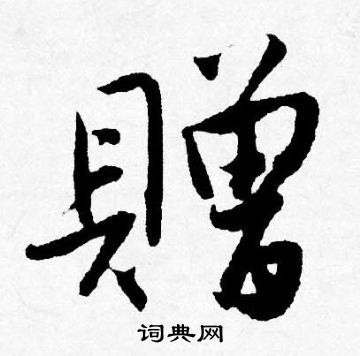 贈
词典网